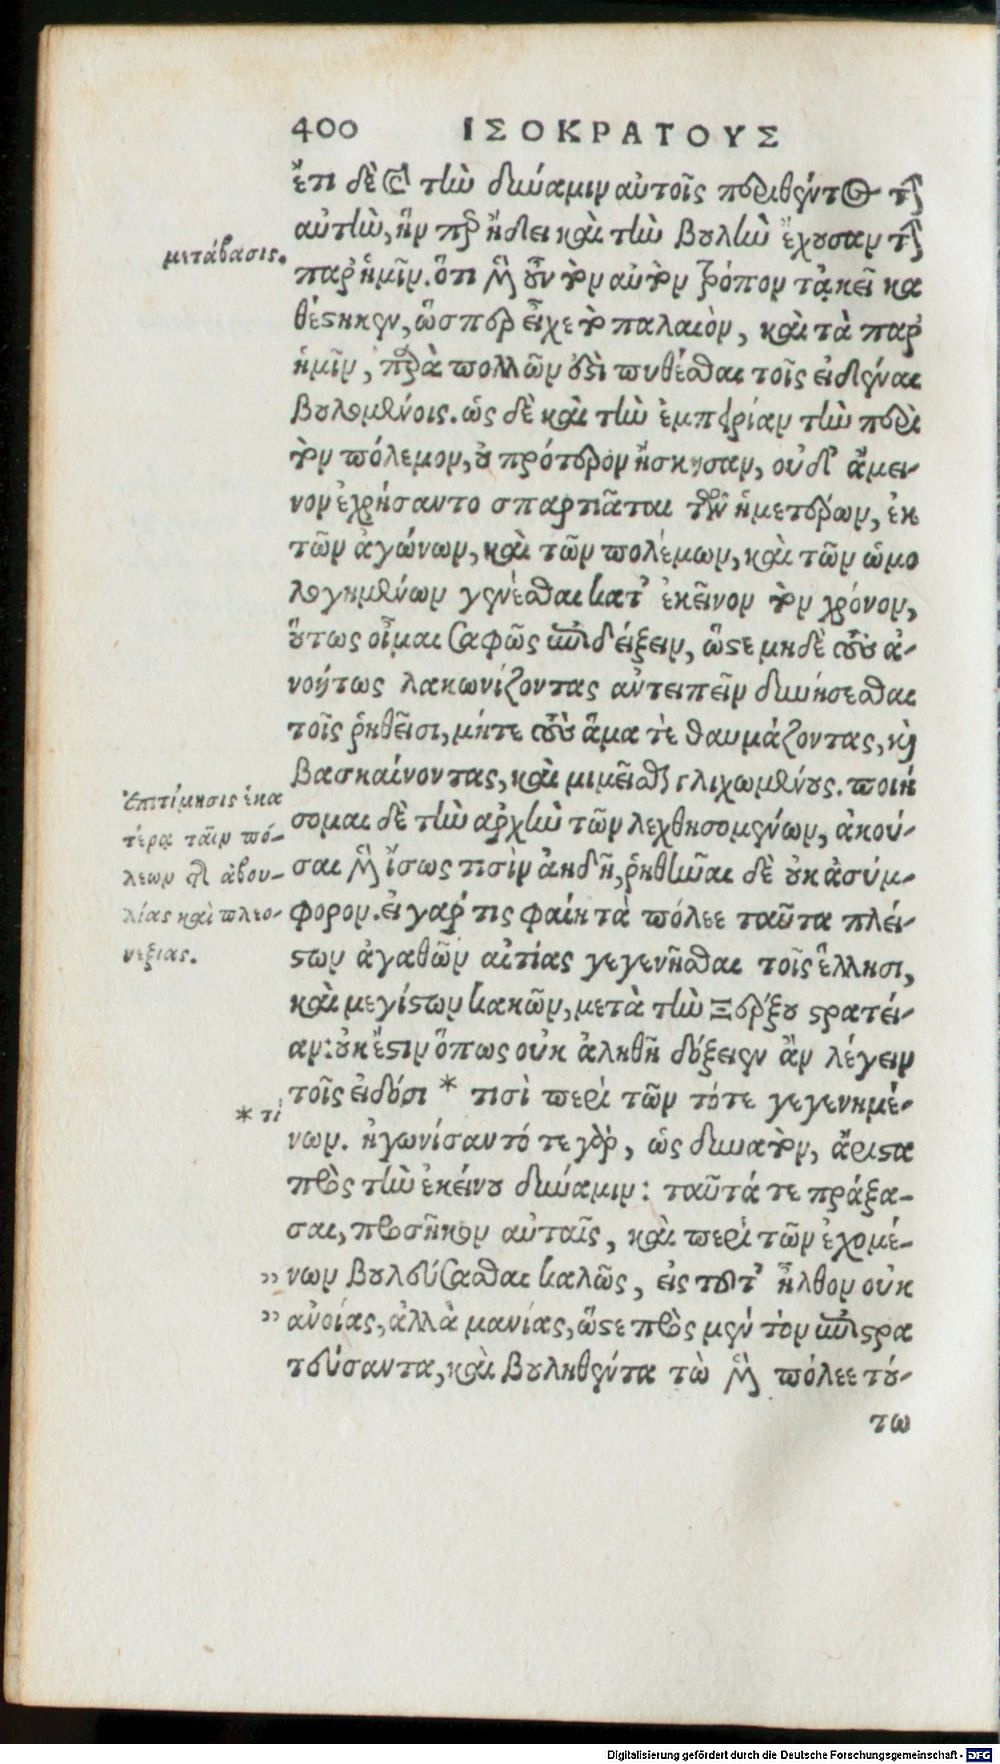 400 ΙΣΟΚΡΑΤΟΥΣ
ἔτι δὲ καὶ τὴν δύναμιν αὐτοῖς περιθέντος τὴν
αὐτὴν, ἥνπερ ᾔδει καὶ τὴν βουλὴν ἔχουσαν τὴν
μετάβασις.
παρ' ἡμῖν. ὅτι μὲν οὖν τὸν αὐτὸν τρόπον τἀκεῖ κα
θέστηκεν, ὥσπερ εἶχε τὸ παλαιὸν, καὶ τὰ παρ'
ἡμῖν, παρὰ πολλῶν ἔστι πυθέσθαι τοῖς εἰδέναι
βουλομένοις. ὡς δὲ καὶ τὴν ἐμπειρίαν τὴν περὶ
τὸν πόλεμον, οὐ πρότερον ἤσκησαν, οὐδ' ἄμει-
νον ἐχρήσαντο σπαρτιᾶται τῶν ἡμετέρων, ἐκ
τῶν ἀγώνων, καὶ τῶν πολέμων, καὶ τῶν ὡμο
λογημένων γενέσθαι κατ' ἐκεῖνον τὸν χρόνον,
οὕτως οἶμαι σαφῶς ἐπιδείξειν, ὥστε μηδὲ τοὺς ἀ-
νοήτως λακωνίζοντας ἀντειπεῖν δυνήσεσθαι
τοῖς ῥηθεῖσι, μήτε τοὺς ἅμα τὲ θαυμάζοντας, καὶ
βασκαίνοντας, καὶ μιμεῖσθαι γλιχομένους. ποιή
Ἐπιτίμησις ἑκα
τέρᾳ ταῖν πό-
λεων διὰ ἀβου-
λίας καὶ πλεο-
νεξίας.
σομαι δὲ τὴν ἀρχὴν τῶν λεχθησομένων, ἀκού-
σαι μὲν ἴσως τισὶν ἀηδῆ, ῥηθῆναι δὲ οὐκ ἀσύμ-
φορον. εἰ γάρ τις φαίη τὰ πόλεε ταῦτα πλεί-
στων ἀγαθῶν αἰτίας γεγενῆσθαι τοῖς ἕλλησι,
καὶ μεγίστων κακῶν, μετὰ τὴν Ξέρξου στρατεί-
αν: οὐκ ἔστιν ὅπως οὐκ ἀληθῆ δόξειεν ἂν λέγειν
τοῖς εἰδόσι * τισὶ περὶ τῶν τότε γεγενημέ-
* τί
νων. ἠγωνίσαντό τε γὰρ, ὡς δυνατὸν, ἄριστα
πρὸς τὴν ἐκείνου δύναμιν: ταῦτά τε πράξα-
σαι, προσῆκον αὐταῖς, καὶ περὶ τῶν ἐχομέ-
„ νων βουλεύσασθαι καλῶς, εἰς τοῦτ' ἦλθον οὐκ
„ ἀνοίας, ἀλλὰ μανίας, ὥστε πρὸς μὲν τὸν ἐπιστρα
τεύσαντα, καὶ βουληθέντα τὼ μὲν πόλεε τού-
τω
Digitalisierung gefördert durch die Deutsche Forschungsgemeinschaft - DFG